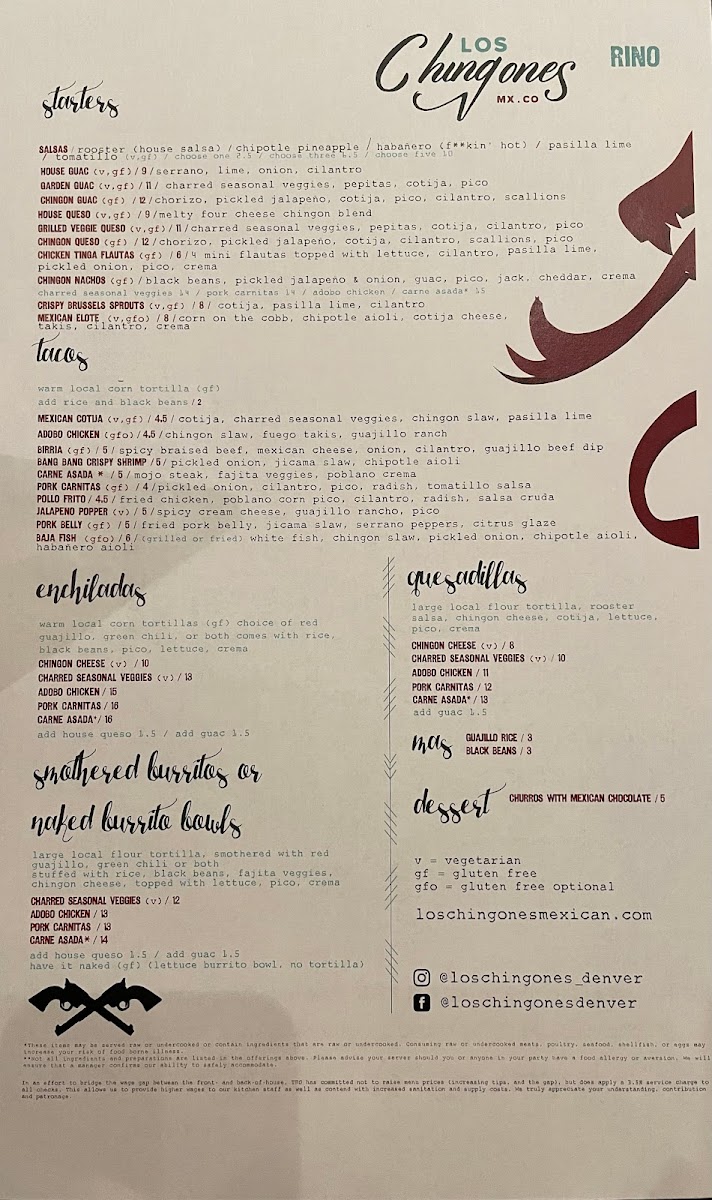 LOS
Chingones
MX.CO
RINO
starters
SALSAS / rooster (house salsa) / chipotle pineapple / habañero (f**kin' hot) / pasilla lime
/ tomatillo (v,gf) / choose one 2.5 / choose three 6.5 / choose five 10
HOUSE GUAC (v,gf) / 9 / serrano, lime, onion, cilantro
GARDEN GUAC (v,gf) / 11 / charred seasonal veggies, pepitas, cotija, pico
CHINGON GUAC (gf) / 12 / chorizo, pickled jalapeño, cotija, pico, cilantro, scallions
HOUSE QUESO (v,gf) / 9 / melty four cheese chingon blend
GRILLED VEGGIE QUESO (v,gf) / 11 / charred seasonal veggies, pepitas, cotija, cilantro, pico
CHINGON QUESO (gf) / 12 / chorizo, pickled jalapeño, cotija, cilantro, scallions, pico
CHICKEN TINGA FLAUTAS (gf) / 6 / 4 mini flautas topped with lettuce, cilantro, pasilla lime,
pickled onion, pico, crema
CHINGON NACHOS (gf) / black beans, pickled jalapeño & onion, guac, pico, jack, cheddar, crema
charred seasonal veggies 14 / pork carnitas 14 / adobo chicken / carne asada* 15
CRISPY BRUSSELS SPROUTS (v,gf) / 8 / cotija, pasilla lime, cilantro
MEXICAN ELOTE (v,gfo) / 8 / corn on the cobb, chipotle aioli, cotija cheese,
takis, cilantro, crema
tacos
warm local corn tortilla (gf)
add rice and black beans / 2
MEXICAN COTIJA (v,gf) / 4.5 / cotija, charred seasonal veggies, chingon slaw, pasilla lime
ADOBO CHICKEN (gfo) / 4.5 / chingon slaw, fuego takis, guajillo ranch
BIRRIA (gf) / 5 / spicy braised beef, mexican cheese, onion, cilantro, guajillo beef dip
BANG BANG CRISPY SHRIMP / 5 / pickled onion, jicama slaw, chipotle aioli
CARNE ASADA * / 5 / mojo steak, fajita veggies, poblano crema
PORK CARNITAS (gf) / 4 / pickled onion, cilantro, pico, radish, tomatillo salsa
POLLO FRITO / 4.5 / fried chicken, poblano corn pico, cilantro, radish, salsa cruda
JALAPENO POPPER (v) / 5 / spicy cream cheese, guajillo rancho, pico
PORK BELLY (gf) / 5 / fried pork belly, jicama slaw, serrano peppers, citrus glaze
BAJA FISH (gfo) / 6 / (grilled or fried) white fish, chingon slaw, pickled onion, chipotle aioli,
habañero aioli
enchiladas
warm local corn tortillas (gf) choice of red
guajillo, green chili, or both comes with rice,
black beans, pico, lettuce, crema
CHINGON CHEESE (v) / 10
CHARRED SEASONAL VEGGIES (v) / 13
ADOBO CHICKEN / 15
PORK CARNITAS / 16
CARNE ASADA* / 16
add house queso 1.5 / add guac 1.5
smothered burritos or
naked burrito bowls
large local flour tortilla, smothered with red
guajillo, green chili or both
stuffed with rice, black beans, fajita veggies,
chingon cheese, topped with lettuce, pico, crema
CHARRED SEASONAL VEGGIES (v) / 12
ADOBO CHICKEN / 13
PORK CARNITAS / 13
CARNE ASADA* / 14
add house queso 1.5 / add guac 1.5
have it naked (gf) (lettuce burrito bowl, no tortilla)
quesadillas
large local flour tortilla, rooster
salsa, chingon cheese, cotija, lettuce,
pico, crema
CHINGON CHEESE (v) / 8
CHARRED SEASONAL VEGGIES (v) / 10
ADOBO CHICKEN / 11
PORK CARNITAS / 12
CARNE ASADA* / 13
add guac 1.5
mas
GUAJILLO RICE / 3
BLACK BEANS / 3
dessert
CHURROS WITH MEXICAN CHOCOLATE / 5
v = vegetarian
gf = gluten free
gfo = gluten free optional
loschingonesmexican.com
@loschingones_denver
@loschingonesdenver
*These items may be served raw or undercooked or contain ingredients that are raw or undercooked. Consuming raw or undercooked meats, poultry, seafood, shellfish, or eggs may
increase your risk of food borne illness.
**Not all ingredients and preparations are listed in the offerings above. Please advise your server should you or anyone in your party have a food allergy or aversion. We will
ensure that a manager confirms our ability to safely accommodate.
In an effort to bridge the wage gap between the front- and back-of-house, has committed not to raise menu prices (increasing tips, and the gap), but does apply a service charge to
all checks. This allows us to provide higher wages to our kitchen staff as well as contend with increased sanitation and supply costs. We truly appreciate your understanding, contribution
and patronage